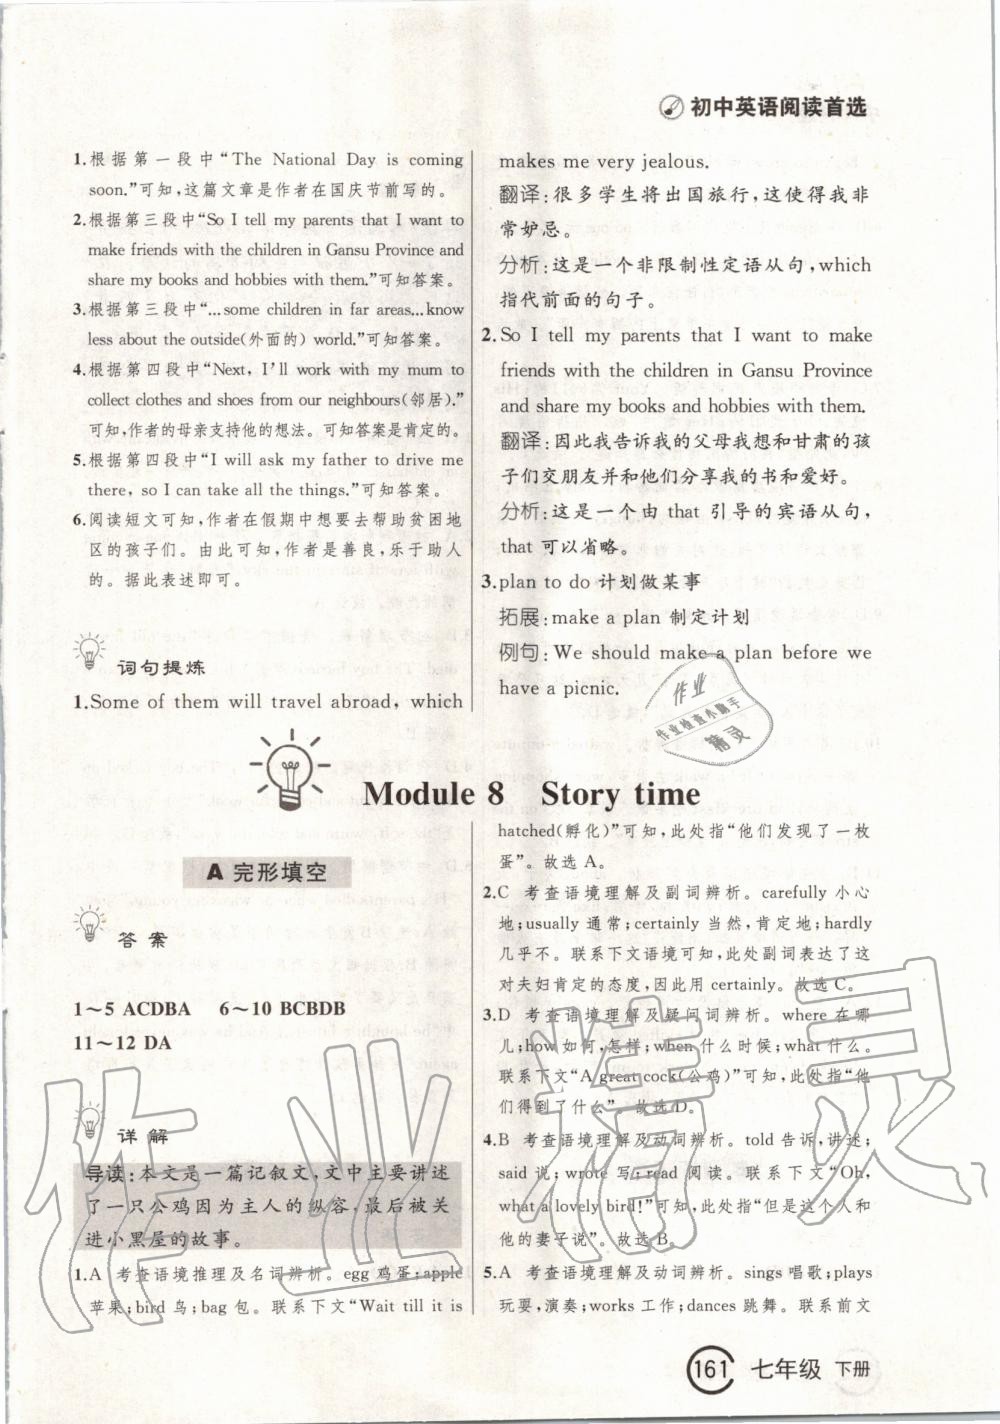 初中英语阅读首选
1.根据第一段中“The National Day is coming
soon.”可知,这篇文章是作者在国庆节前写的。
2.根据第三段中“So I tell my parents that I want to
make friends with the children in Gansu Province and
share my books and hobbies with them.”可知答案。
3.根据第三段中“...some children in far areas...know
less about the outside(外面的) world.”可知答案。
4.根据第四段中“Next, I’ll work with my mum to
collect clothes and shoes from our neighbours(邻居).”
可知,作者的母亲支持他的想法。可知答案是肯定的。
5.根据第四段中“I will ask my father to drive me
there, so I can take all the things.”可知答案。
6.阅读短文可知,作者在假期中想要去帮助贫困地
区的孩子们。由此可知,作者是善良,乐于助人
的。据此表述即可。
词句提炼
1.Some of them will travel abroad, which
makes me very jealous.
翻译:很多学生将出国旅行,这使得我非
常妒忌。
分析:这是一个非限制性定语从句,which
指代前面的句子。
2.So I tell my parents that I want to make
friends with the children in Gansu Province
and share my books and hobbies with them.
翻译:因此我告诉我的父母我想和甘肃的孩
子们交朋友并和他们分享我的书和爱好。
分析:这是一个由 that 引导的宾语从句,
that 可以省略。
3.plan to do 计划做某事
拓展:make a plan 制定计划
例句:We should make a plan before we
have a picnic.
作业
作业检查小助手
精灵
Module 8 Story time
A 完形填空
答案
1～5 ACDBA 6～10 BCBDB
11～12 DA
详解
导读:本文是一篇记叙文,文中主要讲述
了一只公鸡因为主人的纵容,最后被关
进小黑屋的故事。
1.A 考查语境推理及名词辨析。egg 鸡蛋;apple
苹果;bird 鸟;bag 包。联系下文“Wait till it is
hatched(孵化)”可知,此处指“他们发现了一枚
蛋”。故选 A。
2.C 考查语境理解及副词辨析。carefully 小心
地;usually 通常;certainly 当然,肯定地;hardly
几乎不。联系下文语境可知,此处副词表达了这
对夫妇肯定的态度,因此用 certainly。故选 C。
3.D 考查语境理解及疑问词辨析。where 在哪
儿;how如何,怎样;when什么时候;what 什么。
联系下文“A great cock(公鸡)”可知,此处指“他
们得到了什么”。故选 D。
4.B 考查语境理解及动词辨析。told 告诉,讲述;
said 说;wrote 写;read 阅读。联系下文“Oh,
what a lovely bird!”可知,此处指“但是这个人和
他的妻子说”。故选 B。
5.A 考查语境理解及动词辨析。sings 唱歌;plays
玩耍,演奏;works 工作;dances 跳舞。联系前文
作业精灵
161 七年级 下册